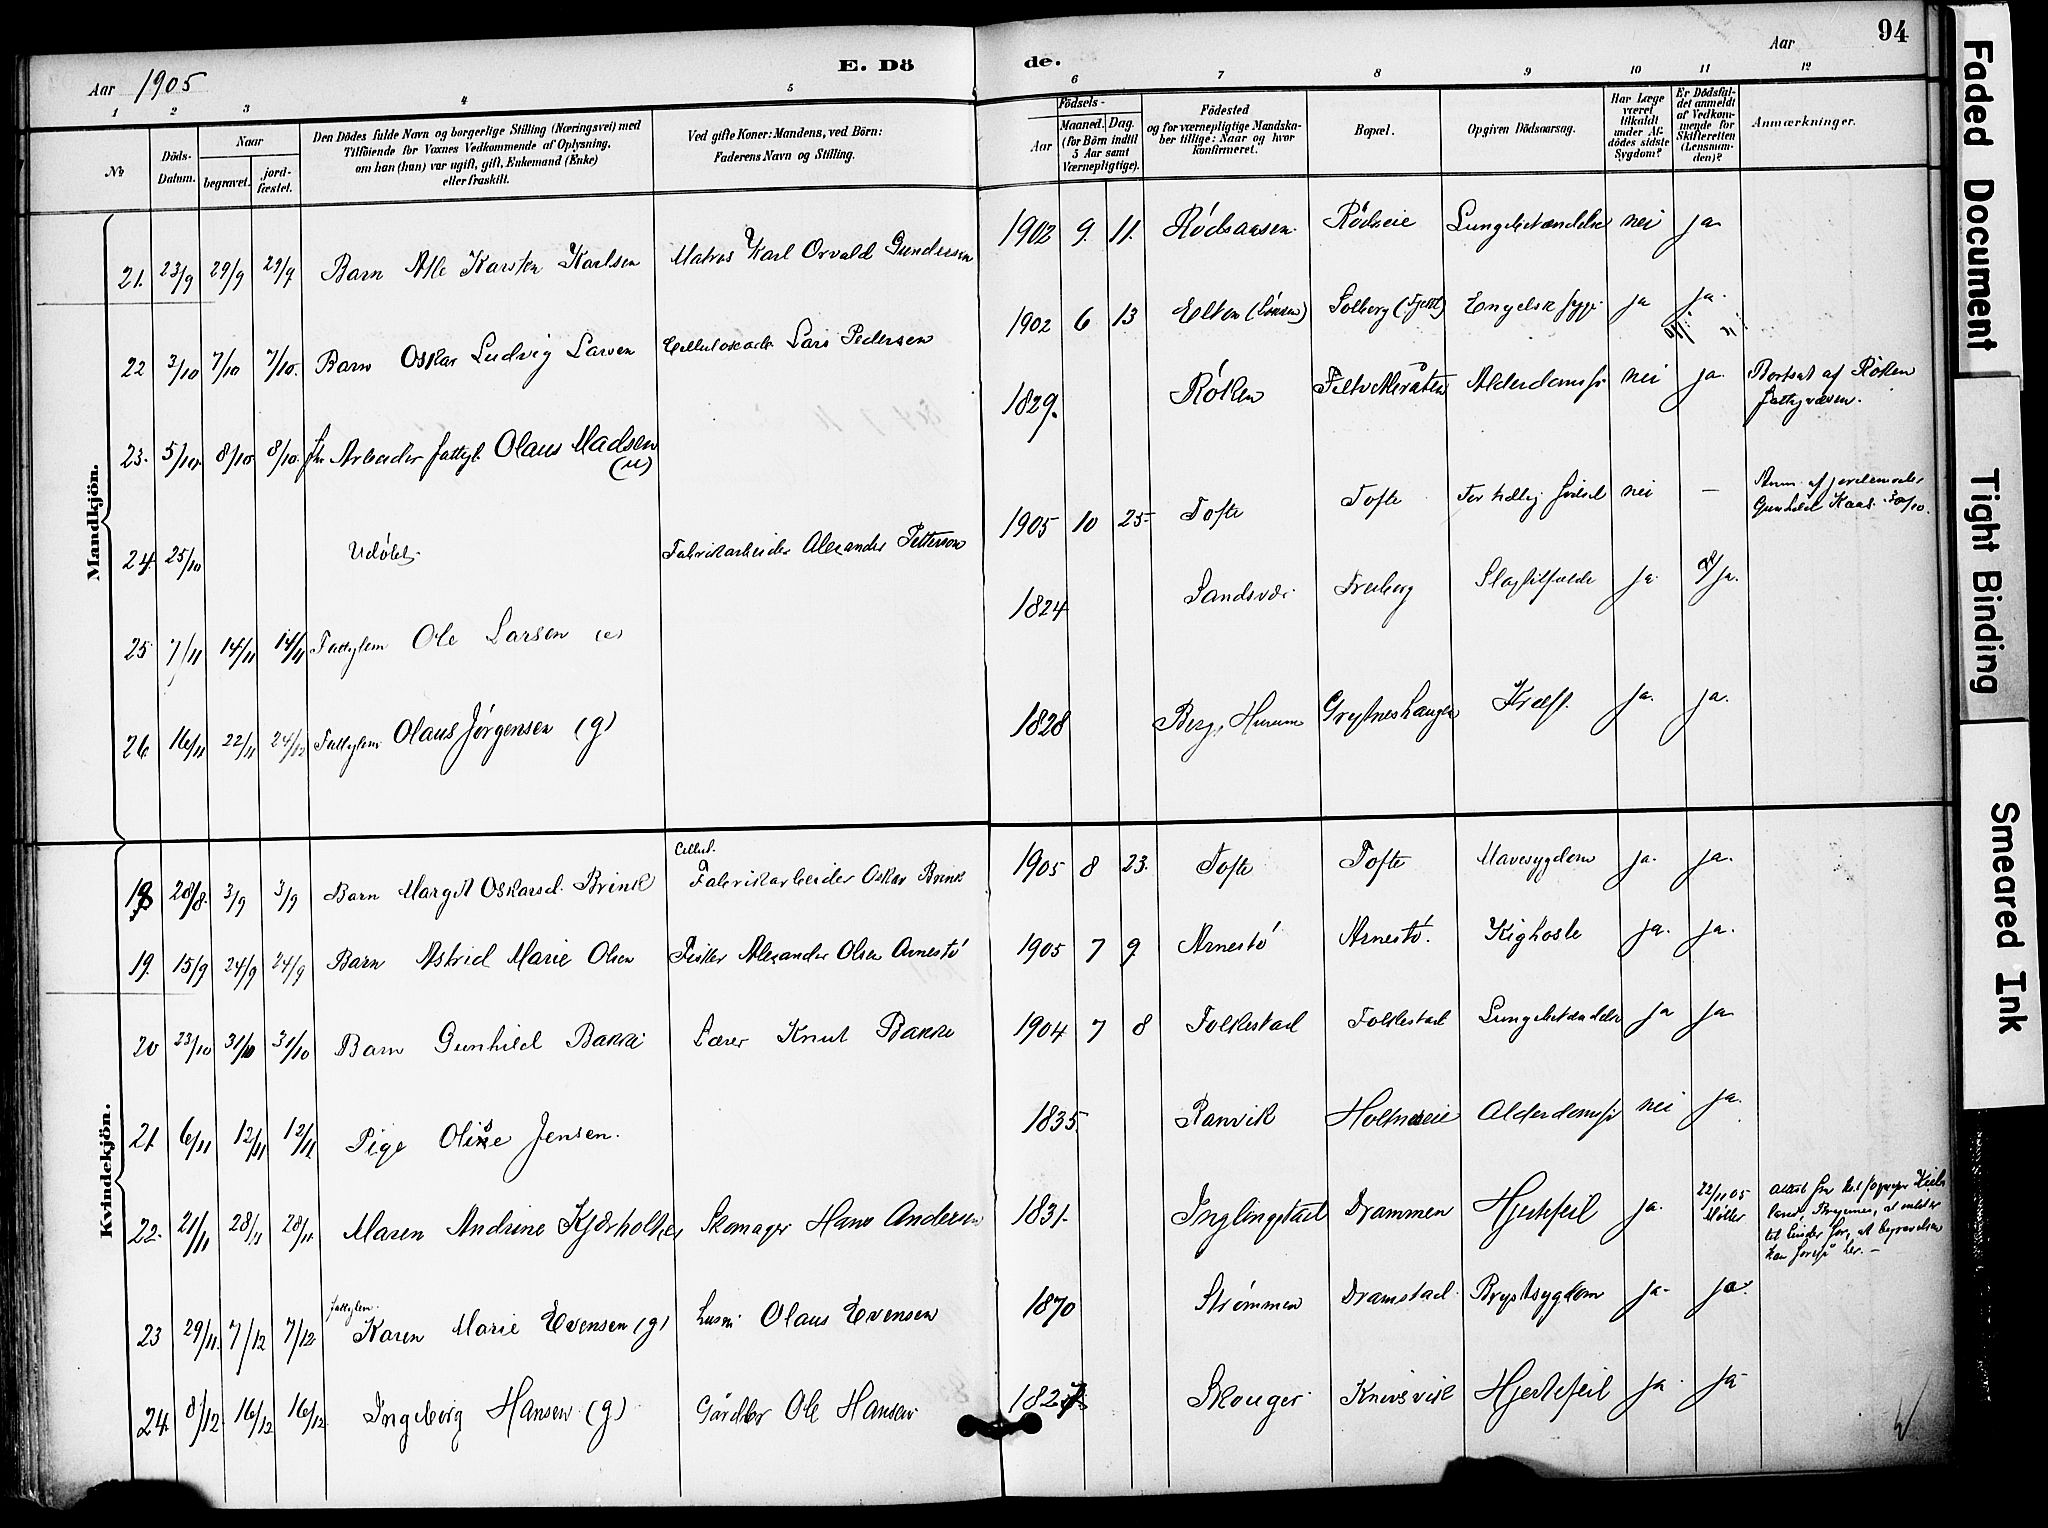 94
Aar 1905
E. Döde.
Aar
1 2 3 4 5 6 7 8 9 10 11 12
No
Döds-Datum.
Naar
begravet.
jordfæstet.
Den Dödes fulde Navn og borgerlige Stilling (Næringsvei) med
Tilföiende for Voxnes Vedkommende af Oplysning,
om han (hun) var ugift, gift, Enkemand (Enke)
eller fraskilt.
Ved gifte Koner: Mandens, ved Börn:
Faderens Navn og Stilling.
Födsels-
Aar
Maaned. Dag.
(for Börn indtil
5 Aar samt
Værnepligtige).
Födested
og for værnepligtige Mandska-
ber tillige: Naar og hvor
konfirmeret.
Bopæl.
Opgiven Dödsaarsag.
Har Læge
været
tilkaldt
under Af-
dödes sidste
Sygdom?
Er Dödsfal-
det anmeldt
af Vedkom-
mende for
Skifteretten
(Lensman-
den)?
Anmærkninger.
Mandkjön.
21. 23/9 29/9 29/9 Barn Atle Karsten Karlsen Matros Karl Orvald Gundersen 1902 9. 11. Rödsaasen Rödseie Lungebetændelse nei ja
22 3/10 7/10 7/10. Barn Oskar Ludvig Larsen Lars Pedersen 1902 6 13 Elten Solberg Engelsk syge ja ja.
23. 5/10. 8/10 8/10. Arbeider fattigl. Olaus Madsen (u) 1829. Röken Alderdomss nei ja. Bortsat af Röken
fattigvæsen.
24. 25/10 Udöbt. Fabrikarbeider Alexander Petterson 1905 10 25 Tofte Tofte For tidlig födsel nei — Anm. af jordemoder
Gunhild Kaas 30/10.
25 7/11 14/11 14/11 Fattiglem Ole Larsen (e) 1824 Sandsvær Freberg Slagtilfælde ja. ja.
26. 16/11 22/11 24/12 Fattiglem Olaus Jörgensen (g) 1828 Berg, Hurum Grytneshaugen Kræft. ja. ja.
Kvindekjön.
18 28/8. 3/9 3/9 Barn Margit Oskarsd. Brink Cellul.
Fabrikarbeider Oskar Brink 1905 8 23. Tofte Tofte Mavesygdom ja. ja.
19. 15/9 24/9 24/9 Barn Astrid Marie Olsen Fisker Alexander Olsen Arnestö 1905 7 9 Arnestö Arnestö. Kighoste ja. ja.
20 23/10 31/10 31/10 Barn Gunhild Bakke Lærer Knut Bakke 1904 7 8 Folkestad Folkestad Lungebetændelse ja ja
21. 6/11 12/11 12/11 Pige Olise Jensen. 1835. Ranvik Holtneseie Alderdomss nei ja.
22. 21/11 28/11 28/11. Maren Andrine Kjærholther Skomager Hans Andersen 1831. Inglingstad Drammen Hjertefeil ja. 22/11 05
Möller Attest fra
at intet er
til hinder for, at begravelsen
kan foregå her. —
23 29/11. 7/12 7/12. fattiglem.
Karen Marie Evensen (g) Husm. Olaus Evensen 1870 Strömmen Dramstad Brystsygdom ja- ja.
24. 8/12 16/12 16/12 Ingeborg Hansen (g) Gårdbr Ole Hansen 1827 Skouger Knivsvik Hjertefeil ja. ja
Faded Document
Tight Binding
Smeared Ink